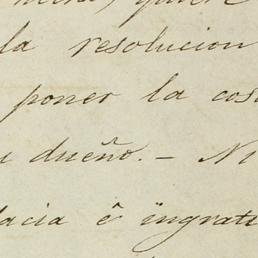 la resolucion
poner la cos
dueño. — Ni
dacia é ingrati